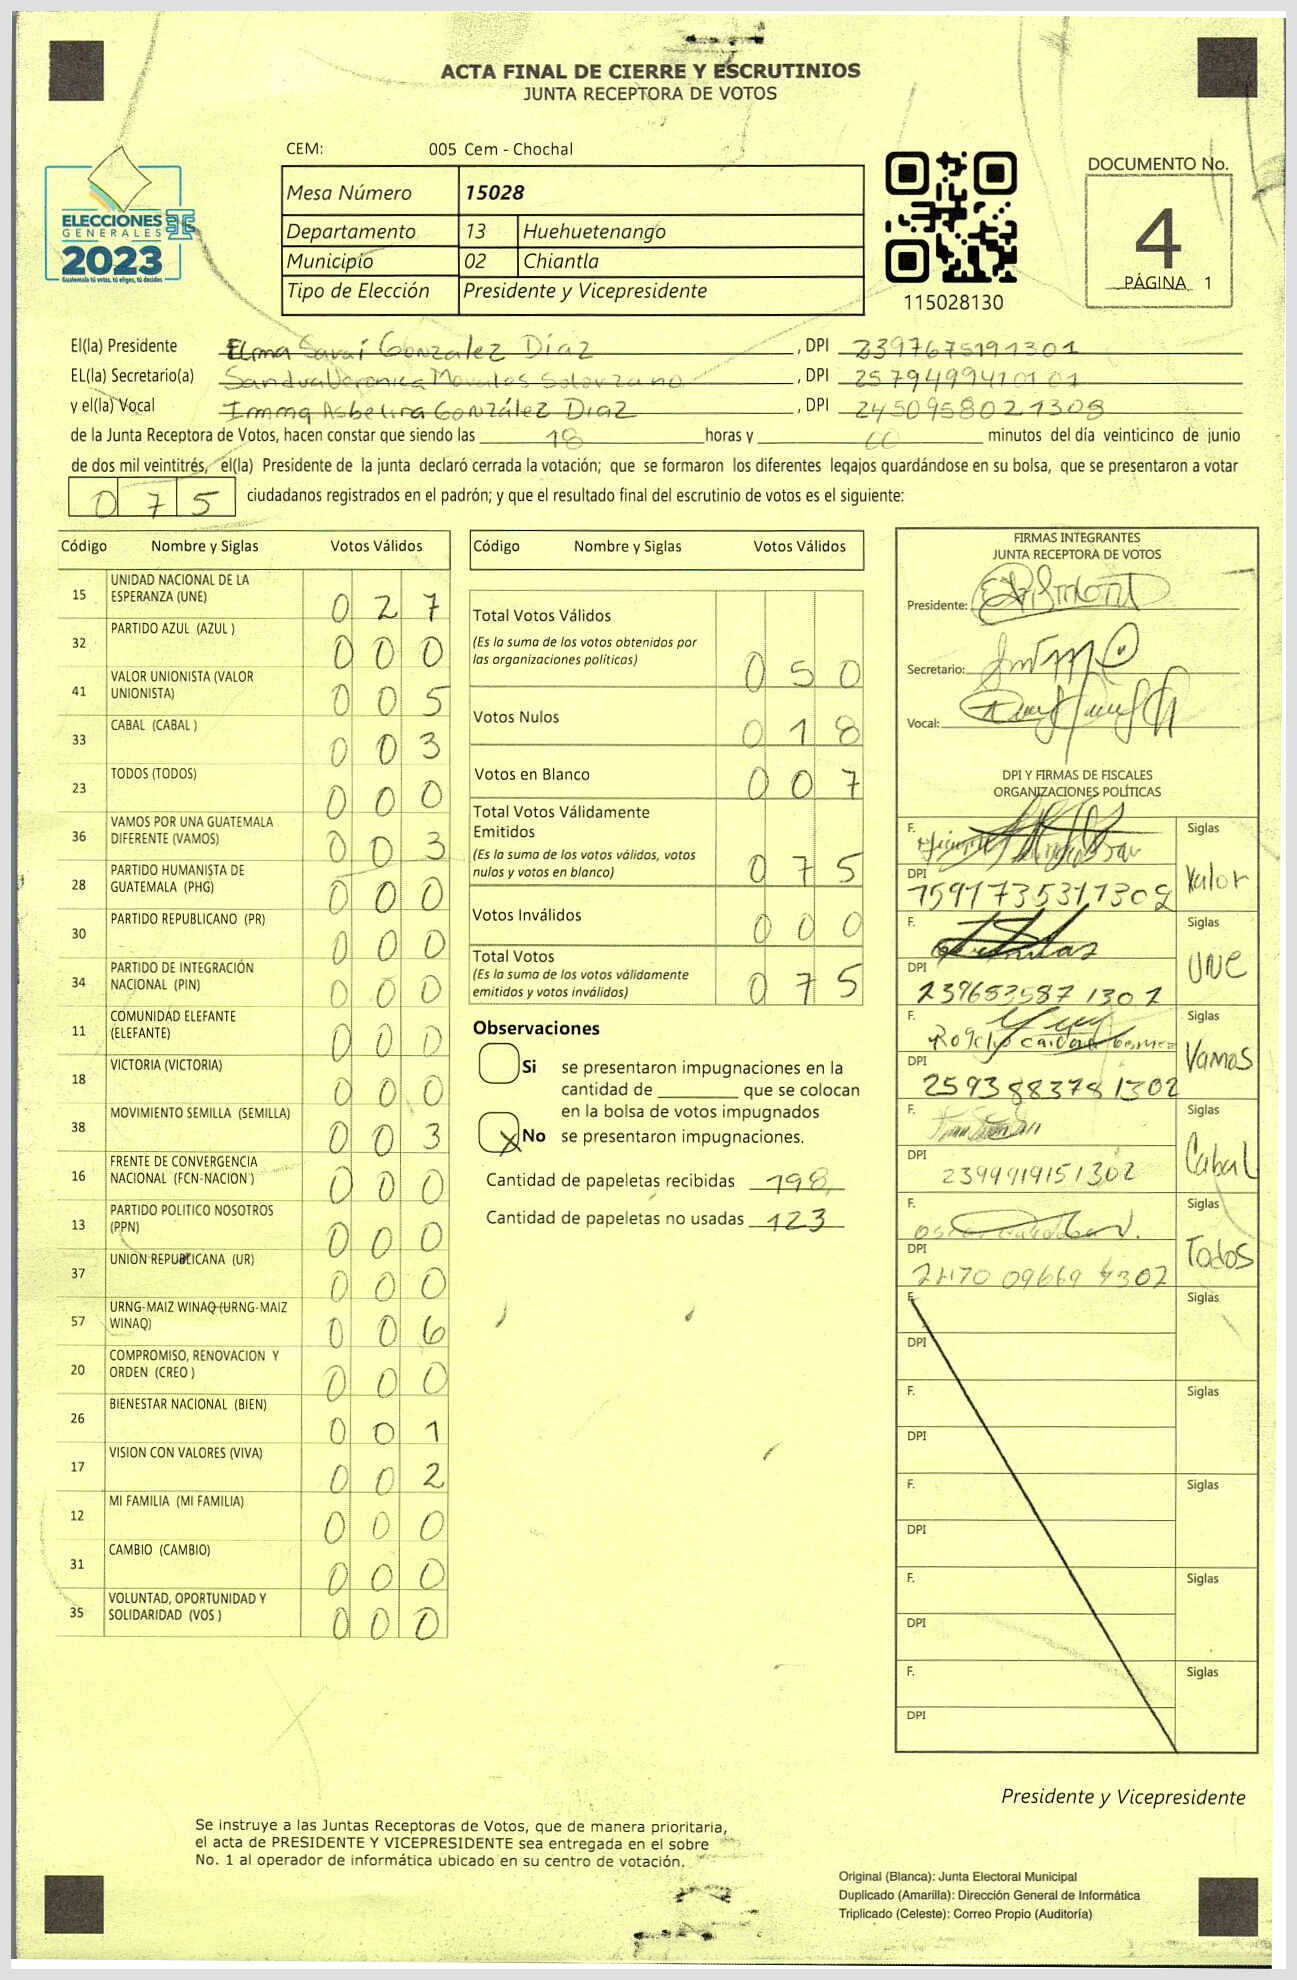 ACTA FINAL DE CIERRE Y ESCRUTINIOS
JUNTA RECEPTORA DE VOTOS
CEM: 005 Cem - Chochal
ELECCIONES
GENERALES
2023
Guatemala tú votas, tú eliges, tú decides
Mesa Número 15028
Departamento 13 Huehuetenango
Municipio 02 Chiantla
Tipo de Elección Presidente y Vicepresidente
115028130
DOCUMENTO No.
4
PÁGINA 1
El(la) Presidente Elma Saraí Gonzalez Díaz, DPI 2397675191301
EL(la) Secretario(a) Sandra Veronica Morales Solorzano, DPI 2579499410101
y el(la) Vocal Imma Asbelina González Diaz, DPI 2450958021308
de la Junta Receptora de Votos, hacen constar que siendo las 18 horas y 00 minutos del día veinticinco de junio
de dos mil veintitrés, el(la) Presidente de la junta declaró cerrada la votación; que se formaron los diferentes legajos guardándose en su bolsa, que se presentaron a votar
0 7 5 ciudadanos registrados en el padrón; y que el resultado final del escrutinio de votos es el siguiente:
Código Nombre y Siglas Votos Válidos
15 UNIDAD NACIONAL DE LA ESPERANZA (UNE) 0 2 7
32 PARTIDO AZUL (AZUL ) 0 0 0
41 VALOR UNIONISTA (VALOR UNIONISTA) 0 0 5
33 CABAL (CABAL ) 0 0 3
23 TODOS (TODOS) 0 0 0
36 VAMOS POR UNA GUATEMALA DIFERENTE (VAMOS) 0 0 3
28 PARTIDO HUMANISTA DE GUATEMALA (PHG) 0 0 0
30 PARTIDO REPUBLICANO (PR) 0 0 0
34 PARTIDO DE INTEGRACIÓN NACIONAL (PIN) 0 0 0
11 COMUNIDAD ELEFANTE (ELEFANTE) 0 0 0
18 VICTORIA (VICTORIA) 0 0 0
38 MOVIMIENTO SEMILLA (SEMILLA) 0 0 3
16 FRENTE DE CONVERGENCIA NACIONAL (FCN-NACION ) 0 0 0
13 PARTIDO POLITICO NOSOTROS (PPN) 0 0 0
37 UNION REPUBLICANA (UR) 0 0 0
57 URNG-MAIZ WINAQ (URNG-MAIZ WINAQ) 0 0 6
20 COMPROMISO, RENOVACION Y ORDEN (CREO ) 0 0 0
26 BIENESTAR NACIONAL (BIEN) 0 0 1
17 VISION CON VALORES (VIVA) 0 0 2
12 MI FAMILIA (MI FAMILIA) 0 0 0
31 CAMBIO (CAMBIO) 0 0 0
35 VOLUNTAD, OPORTUNIDAD Y SOLIDARIDAD (VOS ) 0 0 0
Código Nombre y Siglas Votos Válidos
Total Votos Válidos
(Es la suma de los votos obtenidos por
las organizaciones políticas) 0 5 0
Votos Nulos 0 1 8
Votos en Blanco 0 0 7
Total Votos Válidamente
Emitidos
(Es la suma de los votos válidos, votos
nulos y votos en blanco) 0 7 5
Votos Inválidos 0 0 0
Total Votos
(Es la suma de los votos válidamente
emitidos y votos inválidos) 0 7 5
Observaciones
Si se presentaron impugnaciones en la
cantidad de ________ que se colocan
en la bolsa de votos impugnados
X No se presentaron impugnaciones.
Cantidad de papeletas recibidas 198
Cantidad de papeletas no usadas 123
FIRMAS INTEGRANTES
JUNTA RECEPTORA DE VOTOS
Presidente:
Secretario:
Vocal:
DPI Y FIRMAS DE FISCALES
ORGANIZACIONES POLÍTICAS
F. Siglas
DPI Valor
1591735311302
F. Siglas
DPI UNE
2396535871302
F. Siglas
DPI Vamos
2593883781302
F. Siglas
DPI Cabal
2399919151302
F. Siglas
DPI Todos
F. Siglas
DPI
F. Siglas
DPI
F. Siglas
DPI
F. Siglas
DPI
F. Siglas
DPI
Presidente y Vicepresidente
Se instruye a las Juntas Receptoras de Votos, que de manera prioritaria,
el acta de PRESIDENTE Y VICEPRESIDENTE sea entregada en el sobre
No. 1 al operador de informática ubicado en su centro de votación.
Original (Blanca): Junta Electoral Municipal
Duplicado (Amarilla): Dirección General de Informática
Triplicado (Celeste): Correo Propio (Auditoría)